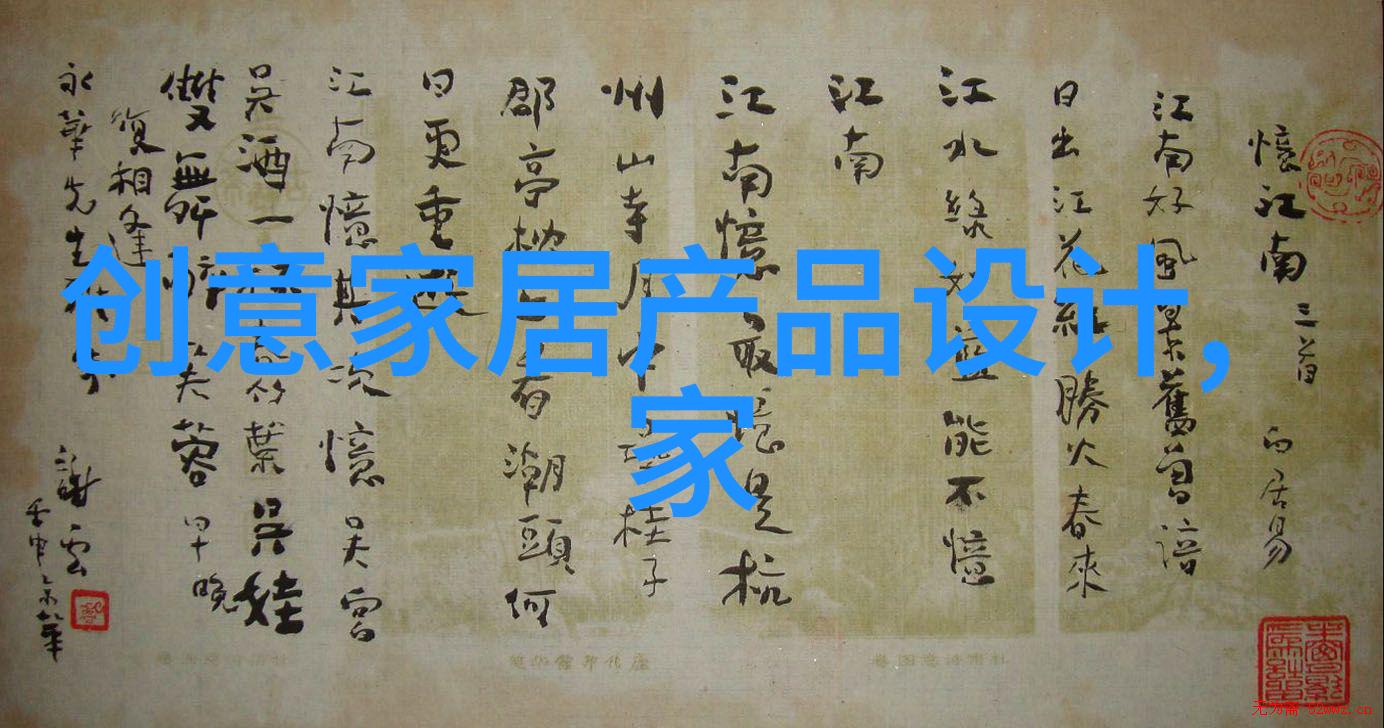 创意家居产品设计,
家
憶江南 三首 白居易
江南好風景舊曾諳
日出江花紅勝火春來
江水綠如藍能不憶
江南
江南憶最憶是杭
州山寺月中桂子
郡亭枕上看潮頭何
日更重遊
江南憶其次憶吳宮
吳酒一杯春竹葉吳娃
雙舞醉芙蓉早晚
復相逢
永華先生
謝云
壬申京華
无为斋 52wwz.cn